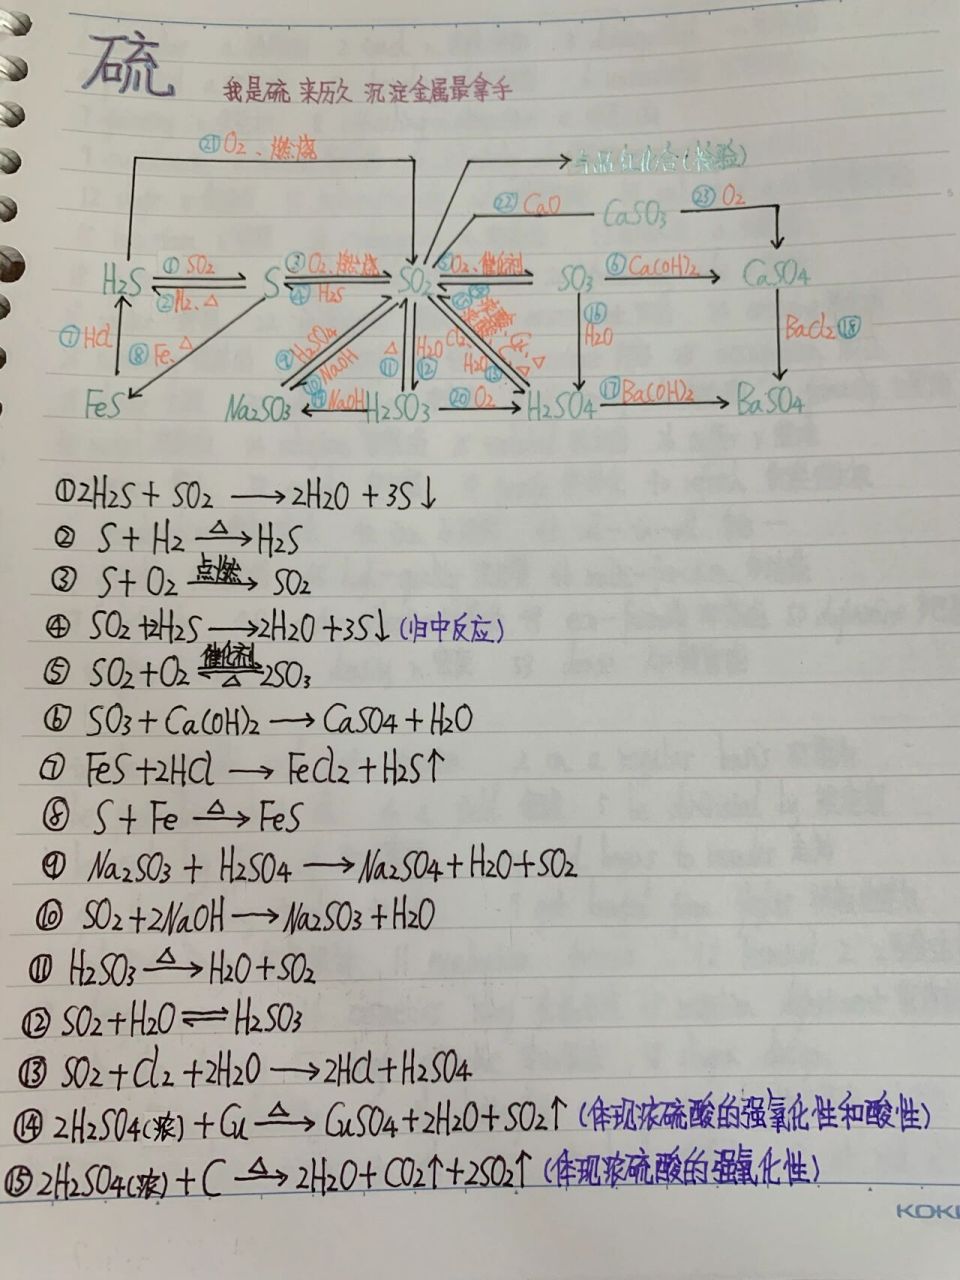 硫
我是硫 来历久 沉淀金属最拿手
㉑O₂、燃烧
与品红化合(检验)
㉒ CaO CaSO₃ ㉓ O₂
H₂S ① SO₂ S ③ O₂、燃烧 SO₂ ⑤O₂、催化剂 SO₃ ⑥ Ca(OH)₂ CaSO₄
②H₂、△ ④ H₂S
⑦HCl ⑧ Fe、△ ⑨ H₂SO₄ ⑩ NaOH ⑪ △ H₂O ⑫ Cl₂、H₂O △ ⑯ H₂O BaCl₂ ⑱
FeS Na₂SO₃ ⑲ NaOH H₂SO₃ ⑳ O₂ H₂SO₄ ⑰Ba(OH)₂ BaSO₄
①2H₂S + SO₂ ⟶ 2H₂O + 3S↓
② S + H₂ △⟶ H₂S
③ S + O₂ 点燃⟶ SO₂
④ SO₂+2H₂S ⟶ 2H₂O + 3S↓ (归中反应)
⑤ SO₂ + O₂ 催化剂⇌△ 2SO₃
⑥ SO₃ + Ca(OH)₂ ⟶ CaSO₄ + H₂O
⑦ FeS + 2HCl ⟶ FeCl₂ + H₂S↑
⑧ S + Fe △⟶ FeS
⑨ Na₂SO₃ + H₂SO₄ ⟶ Na₂SO₄ + H₂O + SO₂
⑩ SO₂ + 2NaOH ⟶ Na₂SO₃ + H₂O
⑪ H₂SO₃ △⟶ H₂O + SO₂
⑫ SO₂ + H₂O ⇌ H₂SO₃
⑬ SO₂ + Cl₂ + 2H₂O ⟶ 2HCl + H₂SO₄
⑭ 2H₂SO₄(浓) + Cu △⟶ CuSO₄ + 2H₂O + SO₂↑ (体现浓硫酸的强氧化性和酸性)
⑮ 2H₂SO₄(浓) + C △⟶ 2H₂O + CO₂↑ + 2SO₂↑ (体现浓硫酸的强氧化性)